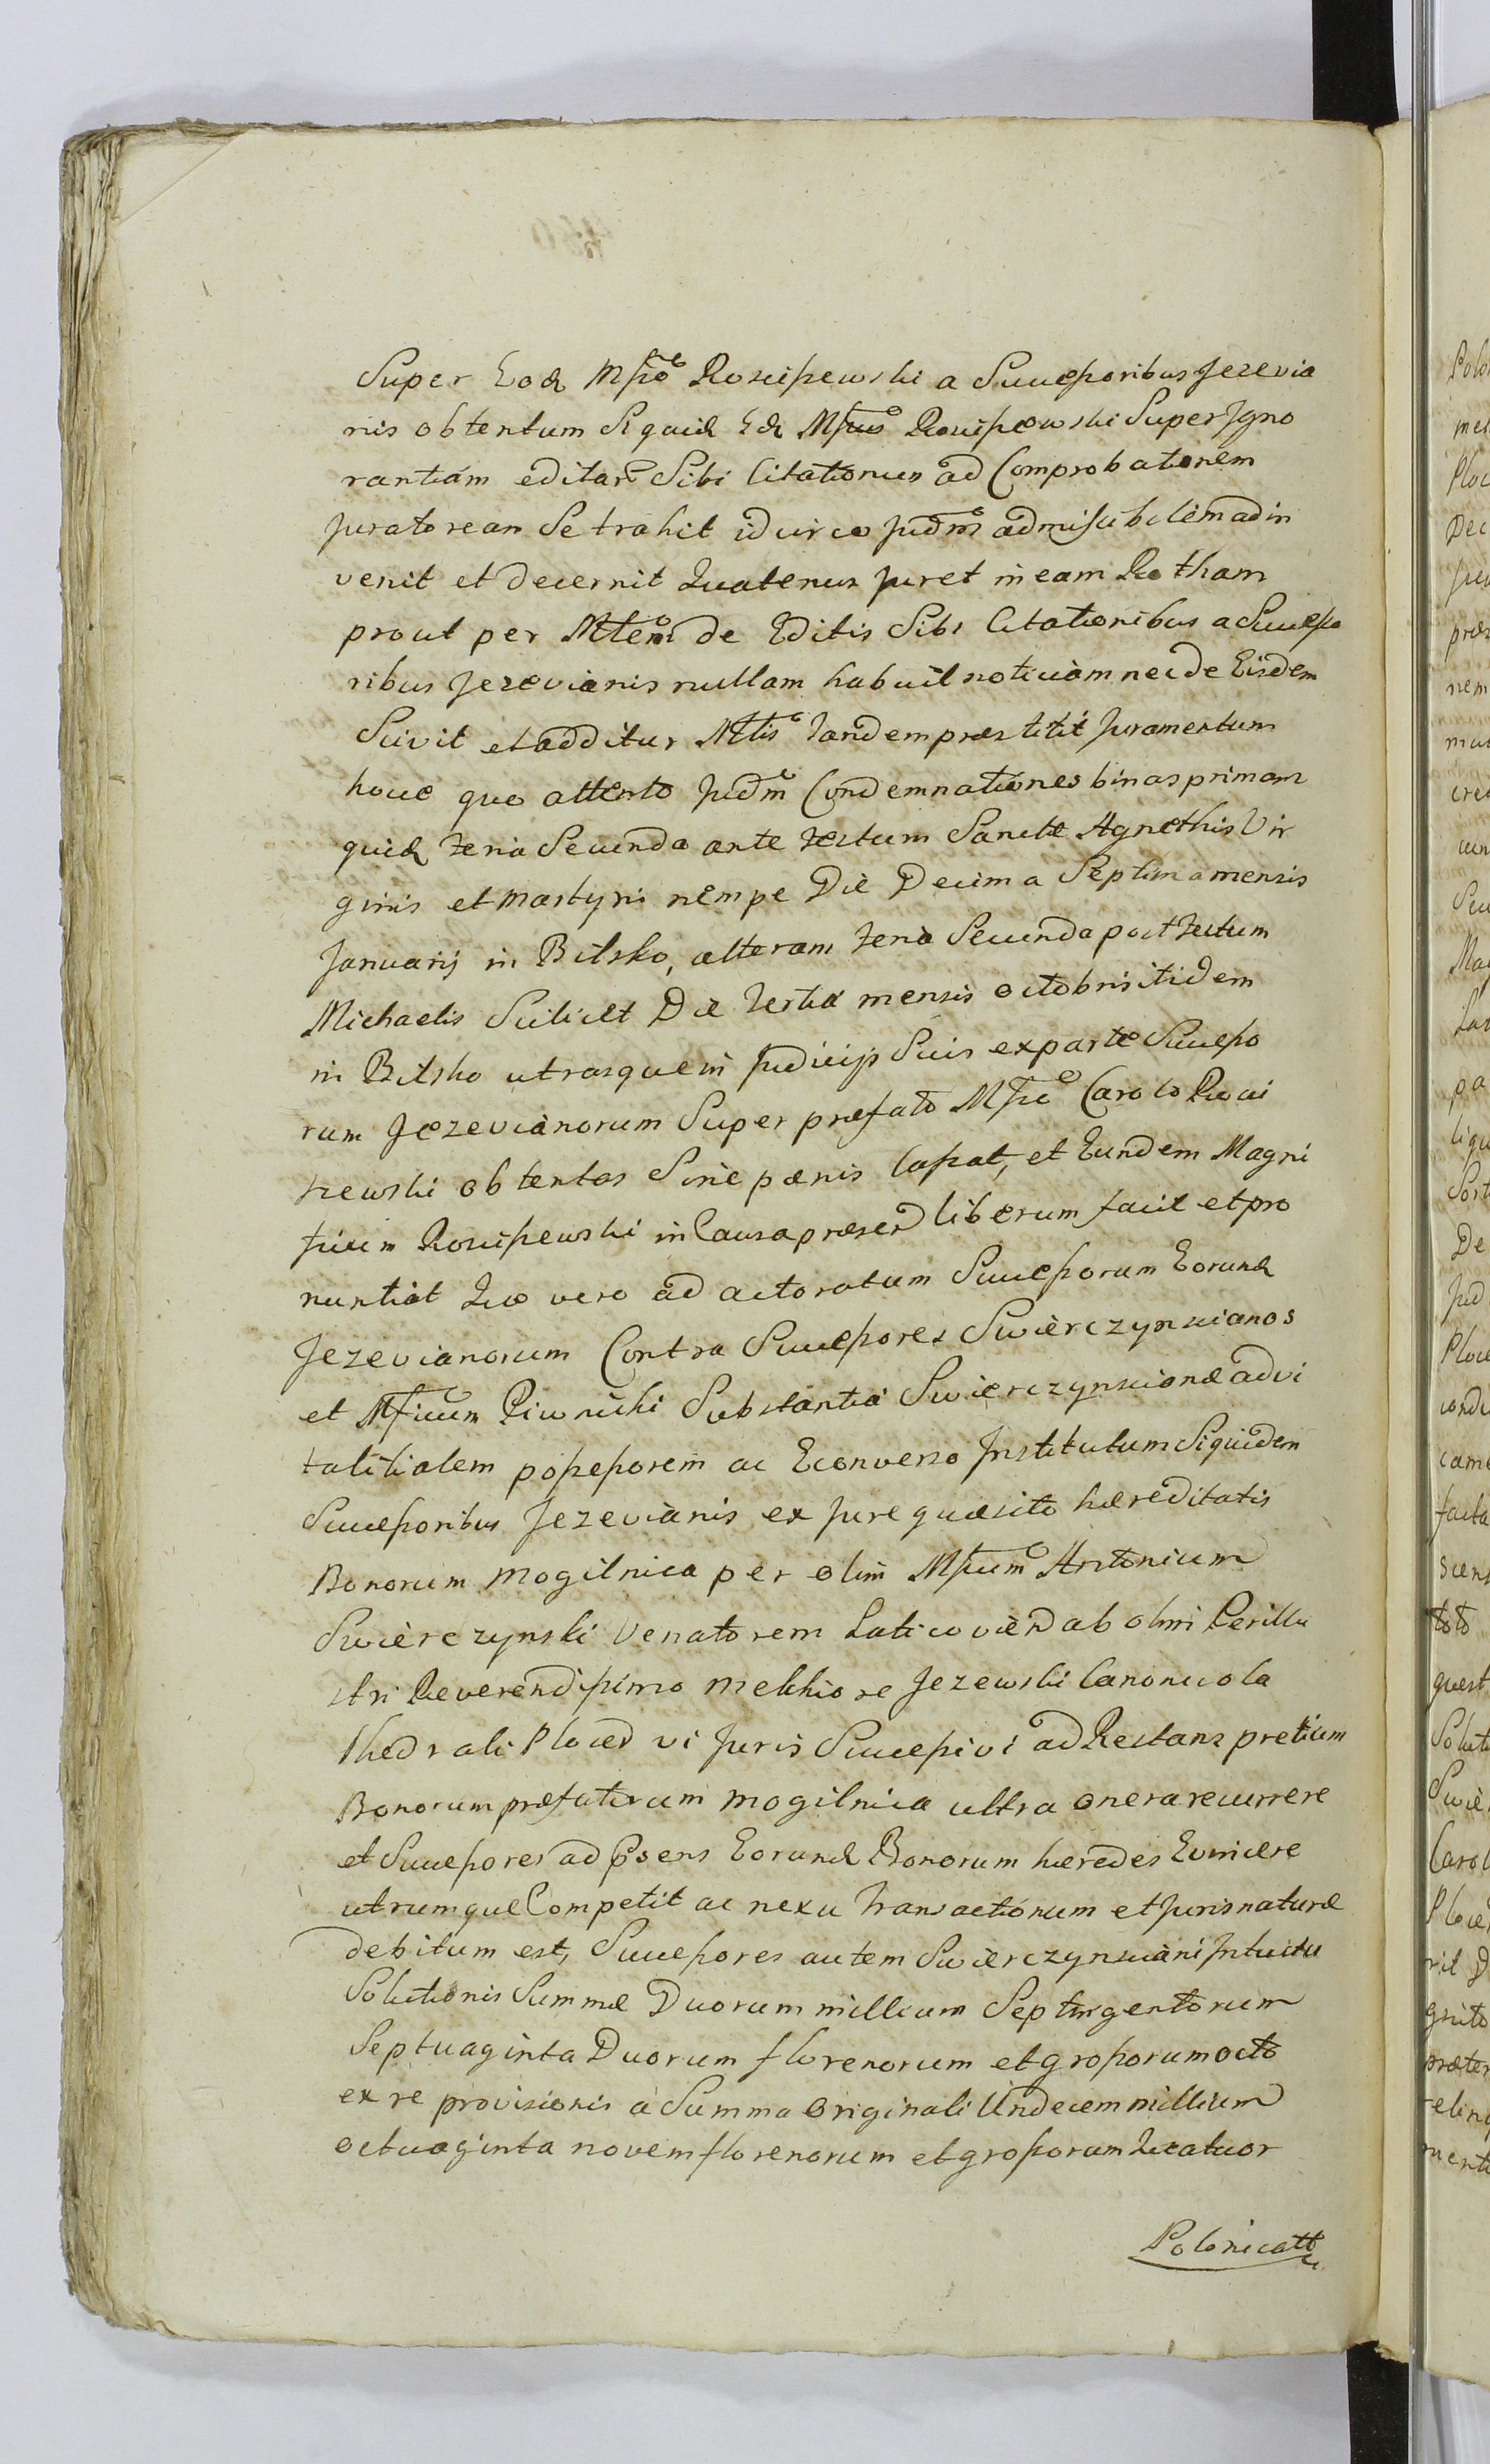 Super Eod Mfco Rościszewski a Successoribus Jezevia
nis obtentum Siquid Id Mfcus Rościszewski Super Igno
rantiam editar Sibi Citationum ad Comprobationem
Juratoream Se trahit idcirco Judm admissibilem adin
venit et decernit Quatenus Juret in eam Rotham
prout per Mtem de Editis Sibi Citationibus a Successo
ribus Jezevianis nullam habuit notitiam nec de Eisdem
Scivit et additur Mtis Tandem præstitit Juramentum
hocce quo attento Judm Condemnationes binas primam
quid Feria Secunda ante Festum Sanctæ Agnethis Vir
ginis et Martyris nempe Die Decima Septima mensis
Januarij in Bilsko, alteram Feria Secunda post Festum
Michaelis Scilicet Die Tertia mensis octobris itidem
in Bilsko utrasque in Judicijs Suis ex parte Successo
rum Jezevianorum Super præfato Mfco Carolo Rosci
szewski obtentas Sine pænis Cassat, et Eundem Magni
ficum Rościszewski in Causa præsen liberum facit et pro
nuntiat Quo vero ad actoratum Successorum Eorund
Jezevianorum Contra Successores Swierczynscianos
et Mficum Piwnicki Substantiæ Swierczynscianæ advi
talitialem possessorem ac Econverso Institutum Siquidem
Successoribus Jezevianis ex Jure quæsito hæreditatis
Bonorum Mogilnica per olim Mfcum Antonium
Swierczynski Venatorem Laticovien ab olim Perillu
stri Reverendissimo Melchiore Jezewski Canonico Ca
thedrali Plocen vi Juris Successivi ad Restans pretium
Bonorum præfatorum Mogilnica ultra onera recurrere
et Successores ad psens Eorund Bonorum hæredes Evincere
utrumque Competit ac nexu Transactionum et Juris naturæ
debitum est, Successores autem Swierczynsciani Intuitu
Solutionis Summæ Duorum millium Septingentorum
Septuaginta Duorum florenorum et grossorum octo
ex re provisionis a Summa Originali Undecem millium
octuaginta novem florenorum et grossorum Quatuor
Polonicall